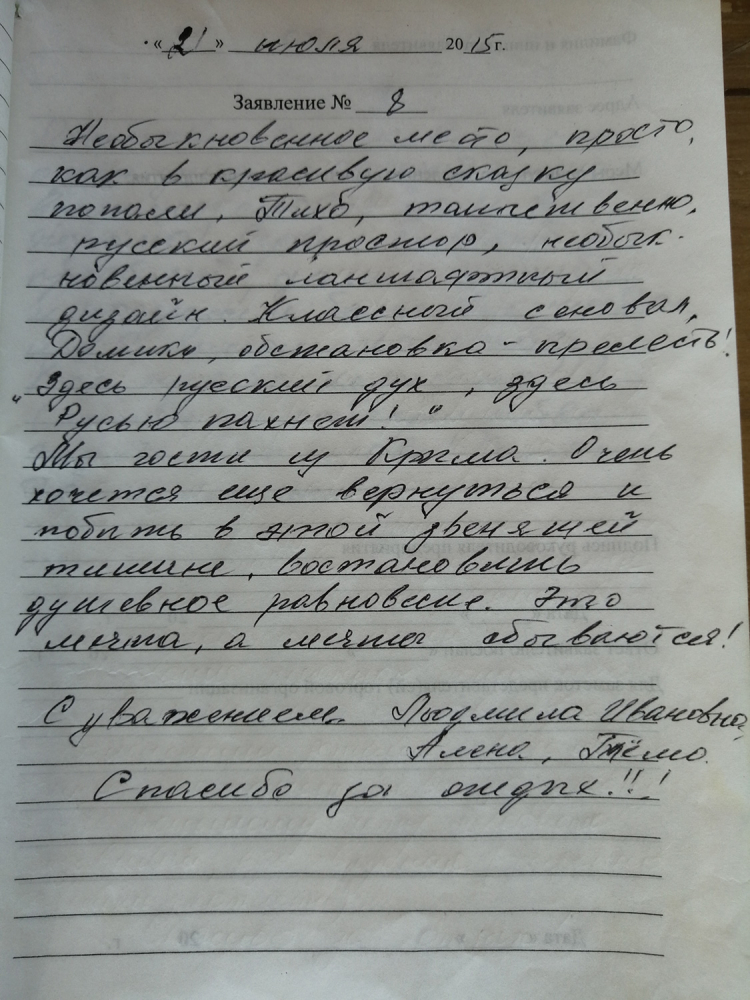 « 21 » июля 2015 г.
Заявление № 8
Необыкновенное место, просто,
как в красивую сказку
попали. Тихо, таинственно,
русский простор, необык-
новенный ланшафтный
дизайн. Классный сеновал,
Домики, обстановка - прелесть!
"Здесь русский дух, здесь
Русью пахнет!"
Мы гости из Крыма. Очень
хочется еще вернуться и
побыть в этой звенящей
тишине, востановить
душевное равновесие. Это
мечта, а мечты сбываются!
С уважением Людмила Ивановна,
Алена, Тёма.
Спасибо за отдых!!!